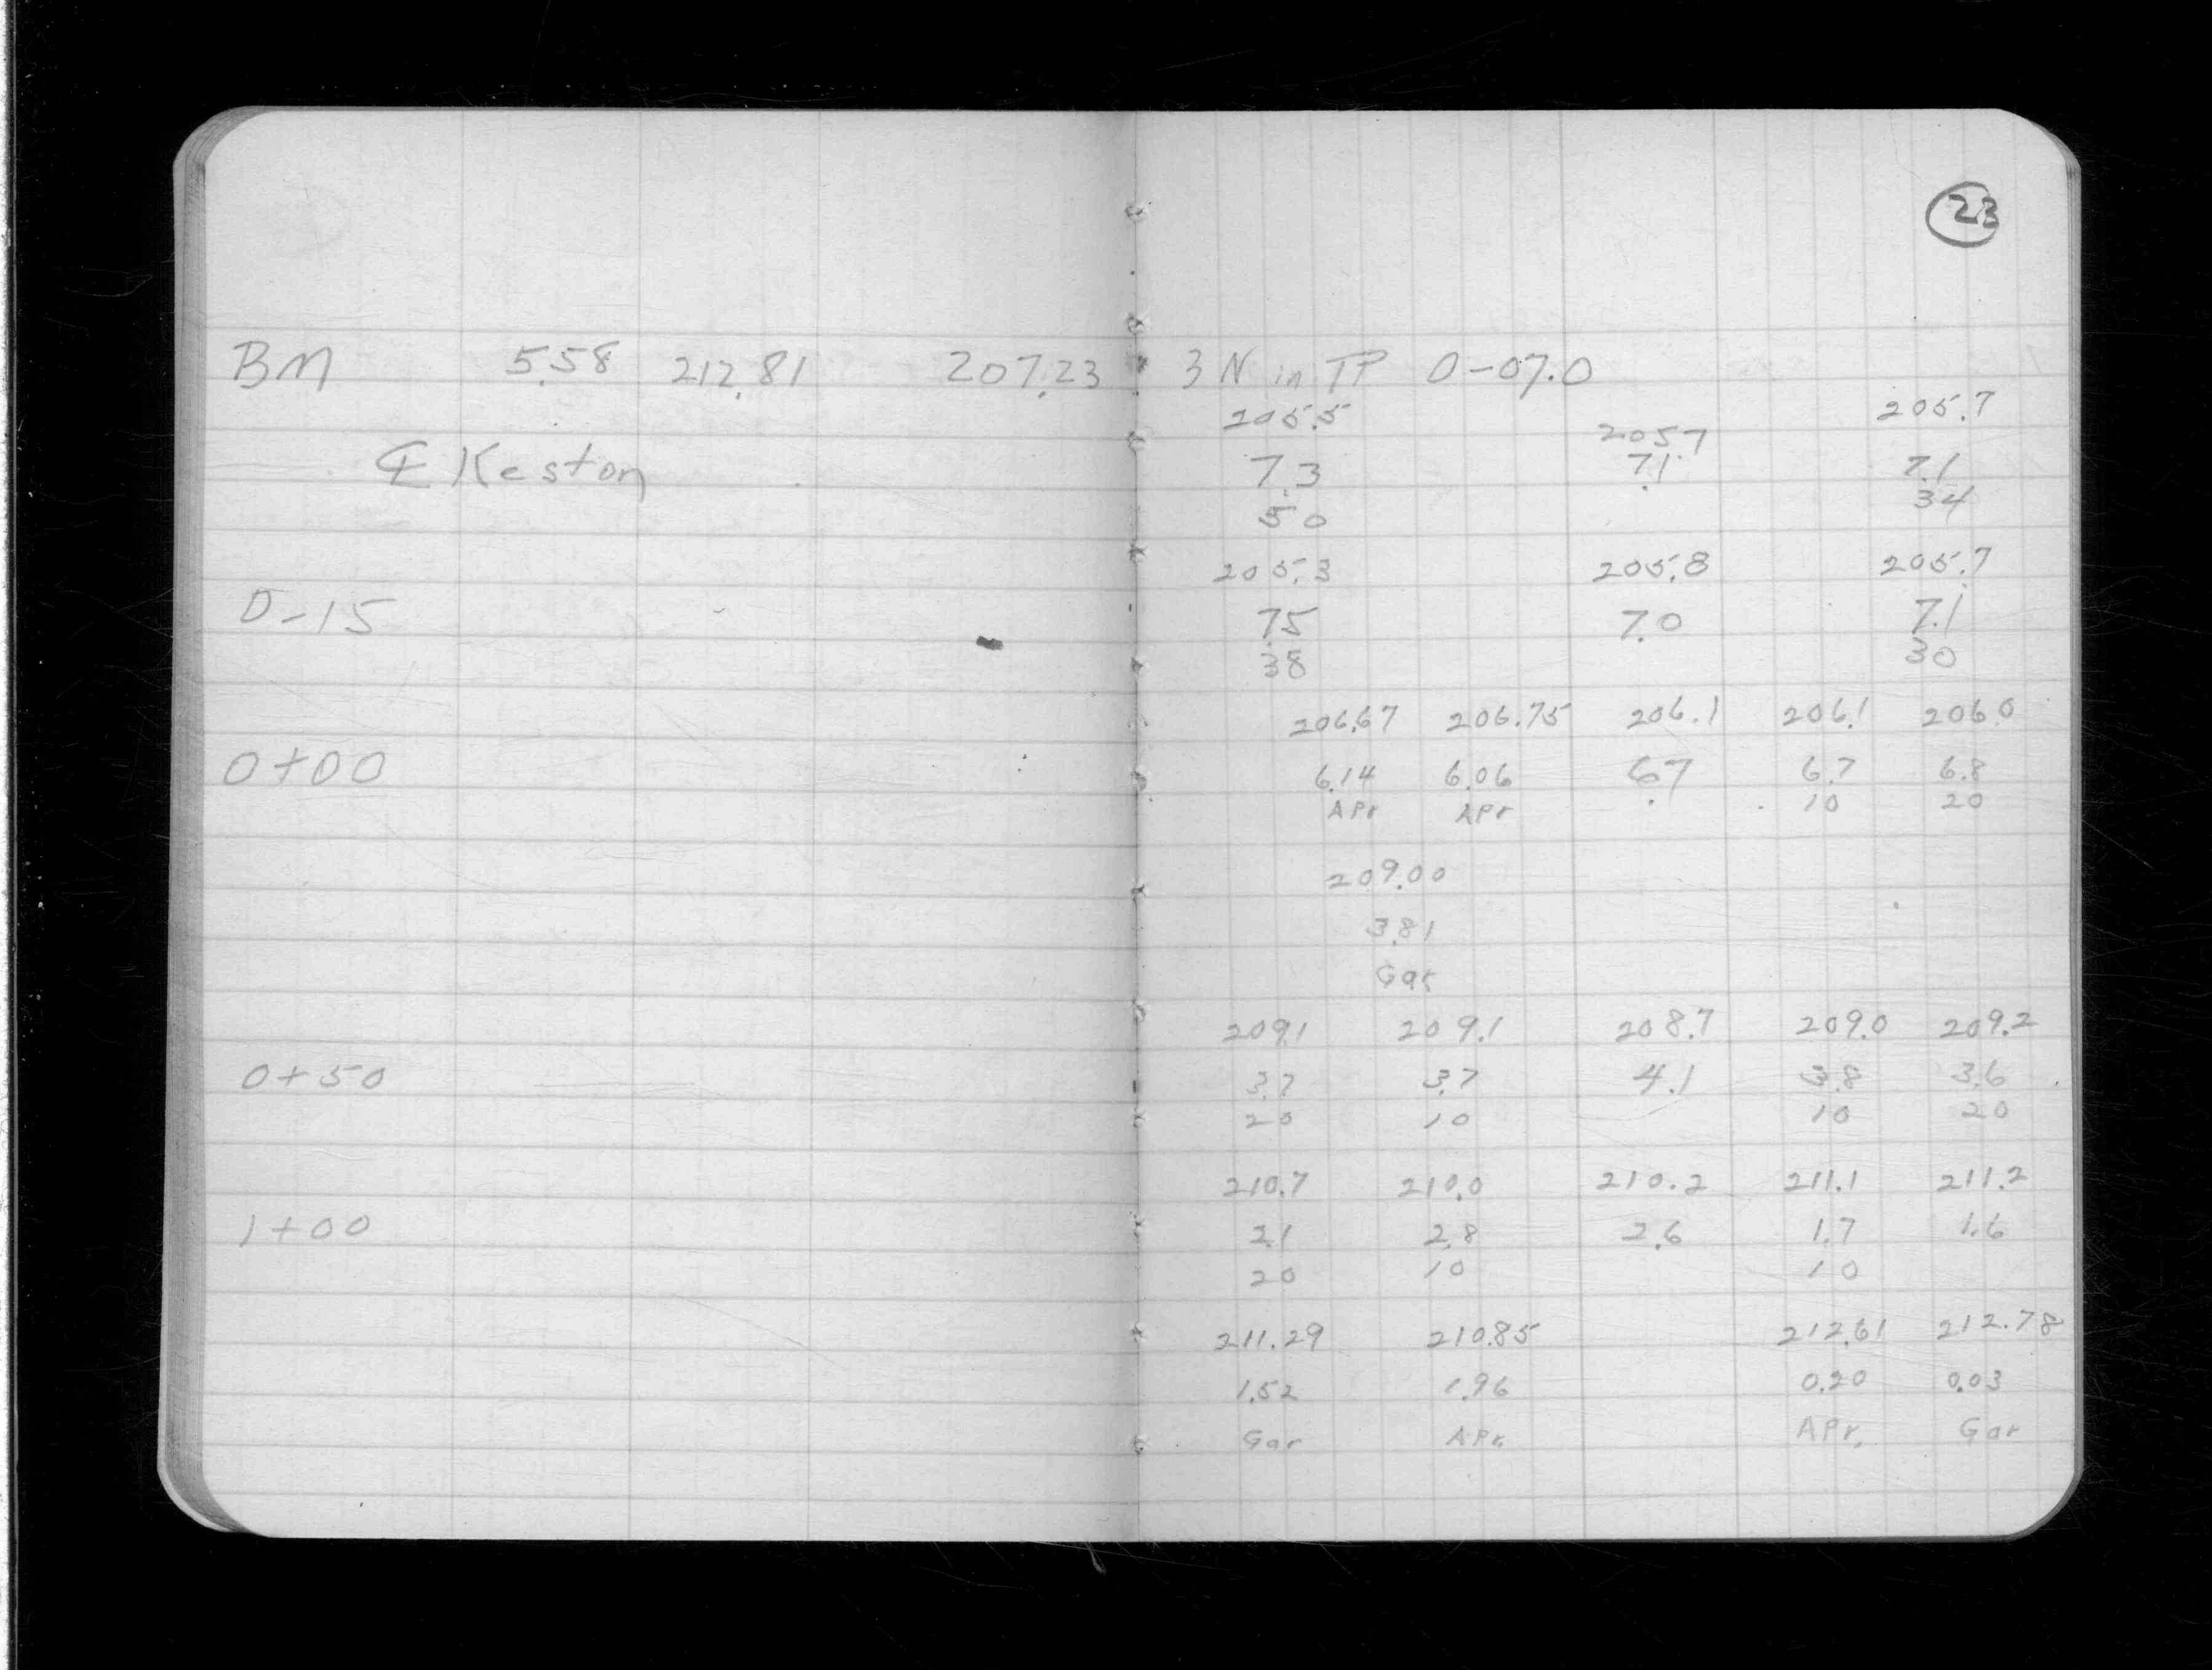 23
BM 5.58 212.81 207.23 3 N in TP 0-07.0
205.5 205.7 205.7
℄ Keston 7.3 7.1 7.1
50 34
205.3 205.8 205.7
0-15 7.5 7.0 7.1
38 30
206.67 206.75 206.1 206.1 206.0
0+00 6.14 6.06 6.7 6.7 6.8
APr APr 10 20
209.00
3.81
Gar
209.1 209.1 208.7 209.0 209.2
0+50 3.7 3.7 4.1 3.8 3.6
20 10 10 20
210.7 210.0 210.2 211.1 211.2
1+00 2.1 2.8 2.6 1.7 1.6
20 10 10
211.29 210.85 212.61 212.78
1.52 1.96 0.20 0.03
Gar APr. APr. Gar